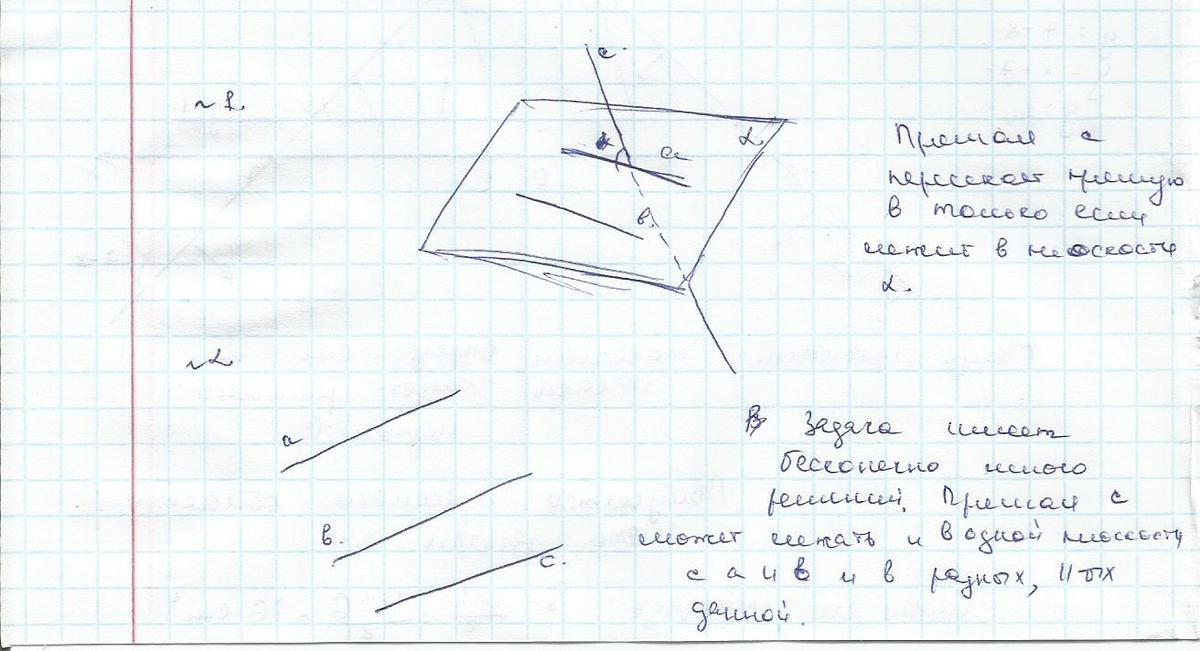 ~1.
c.
α
a
в.
Прямая c
пересекает прямую
в только если
лежит в плоскости
α.
~2
a
в.
c.
Задача имеет
бесконечно много
решений. Прямая c
может лежать и в одной плоскости
с a и в и в разных, ||ых
данной.